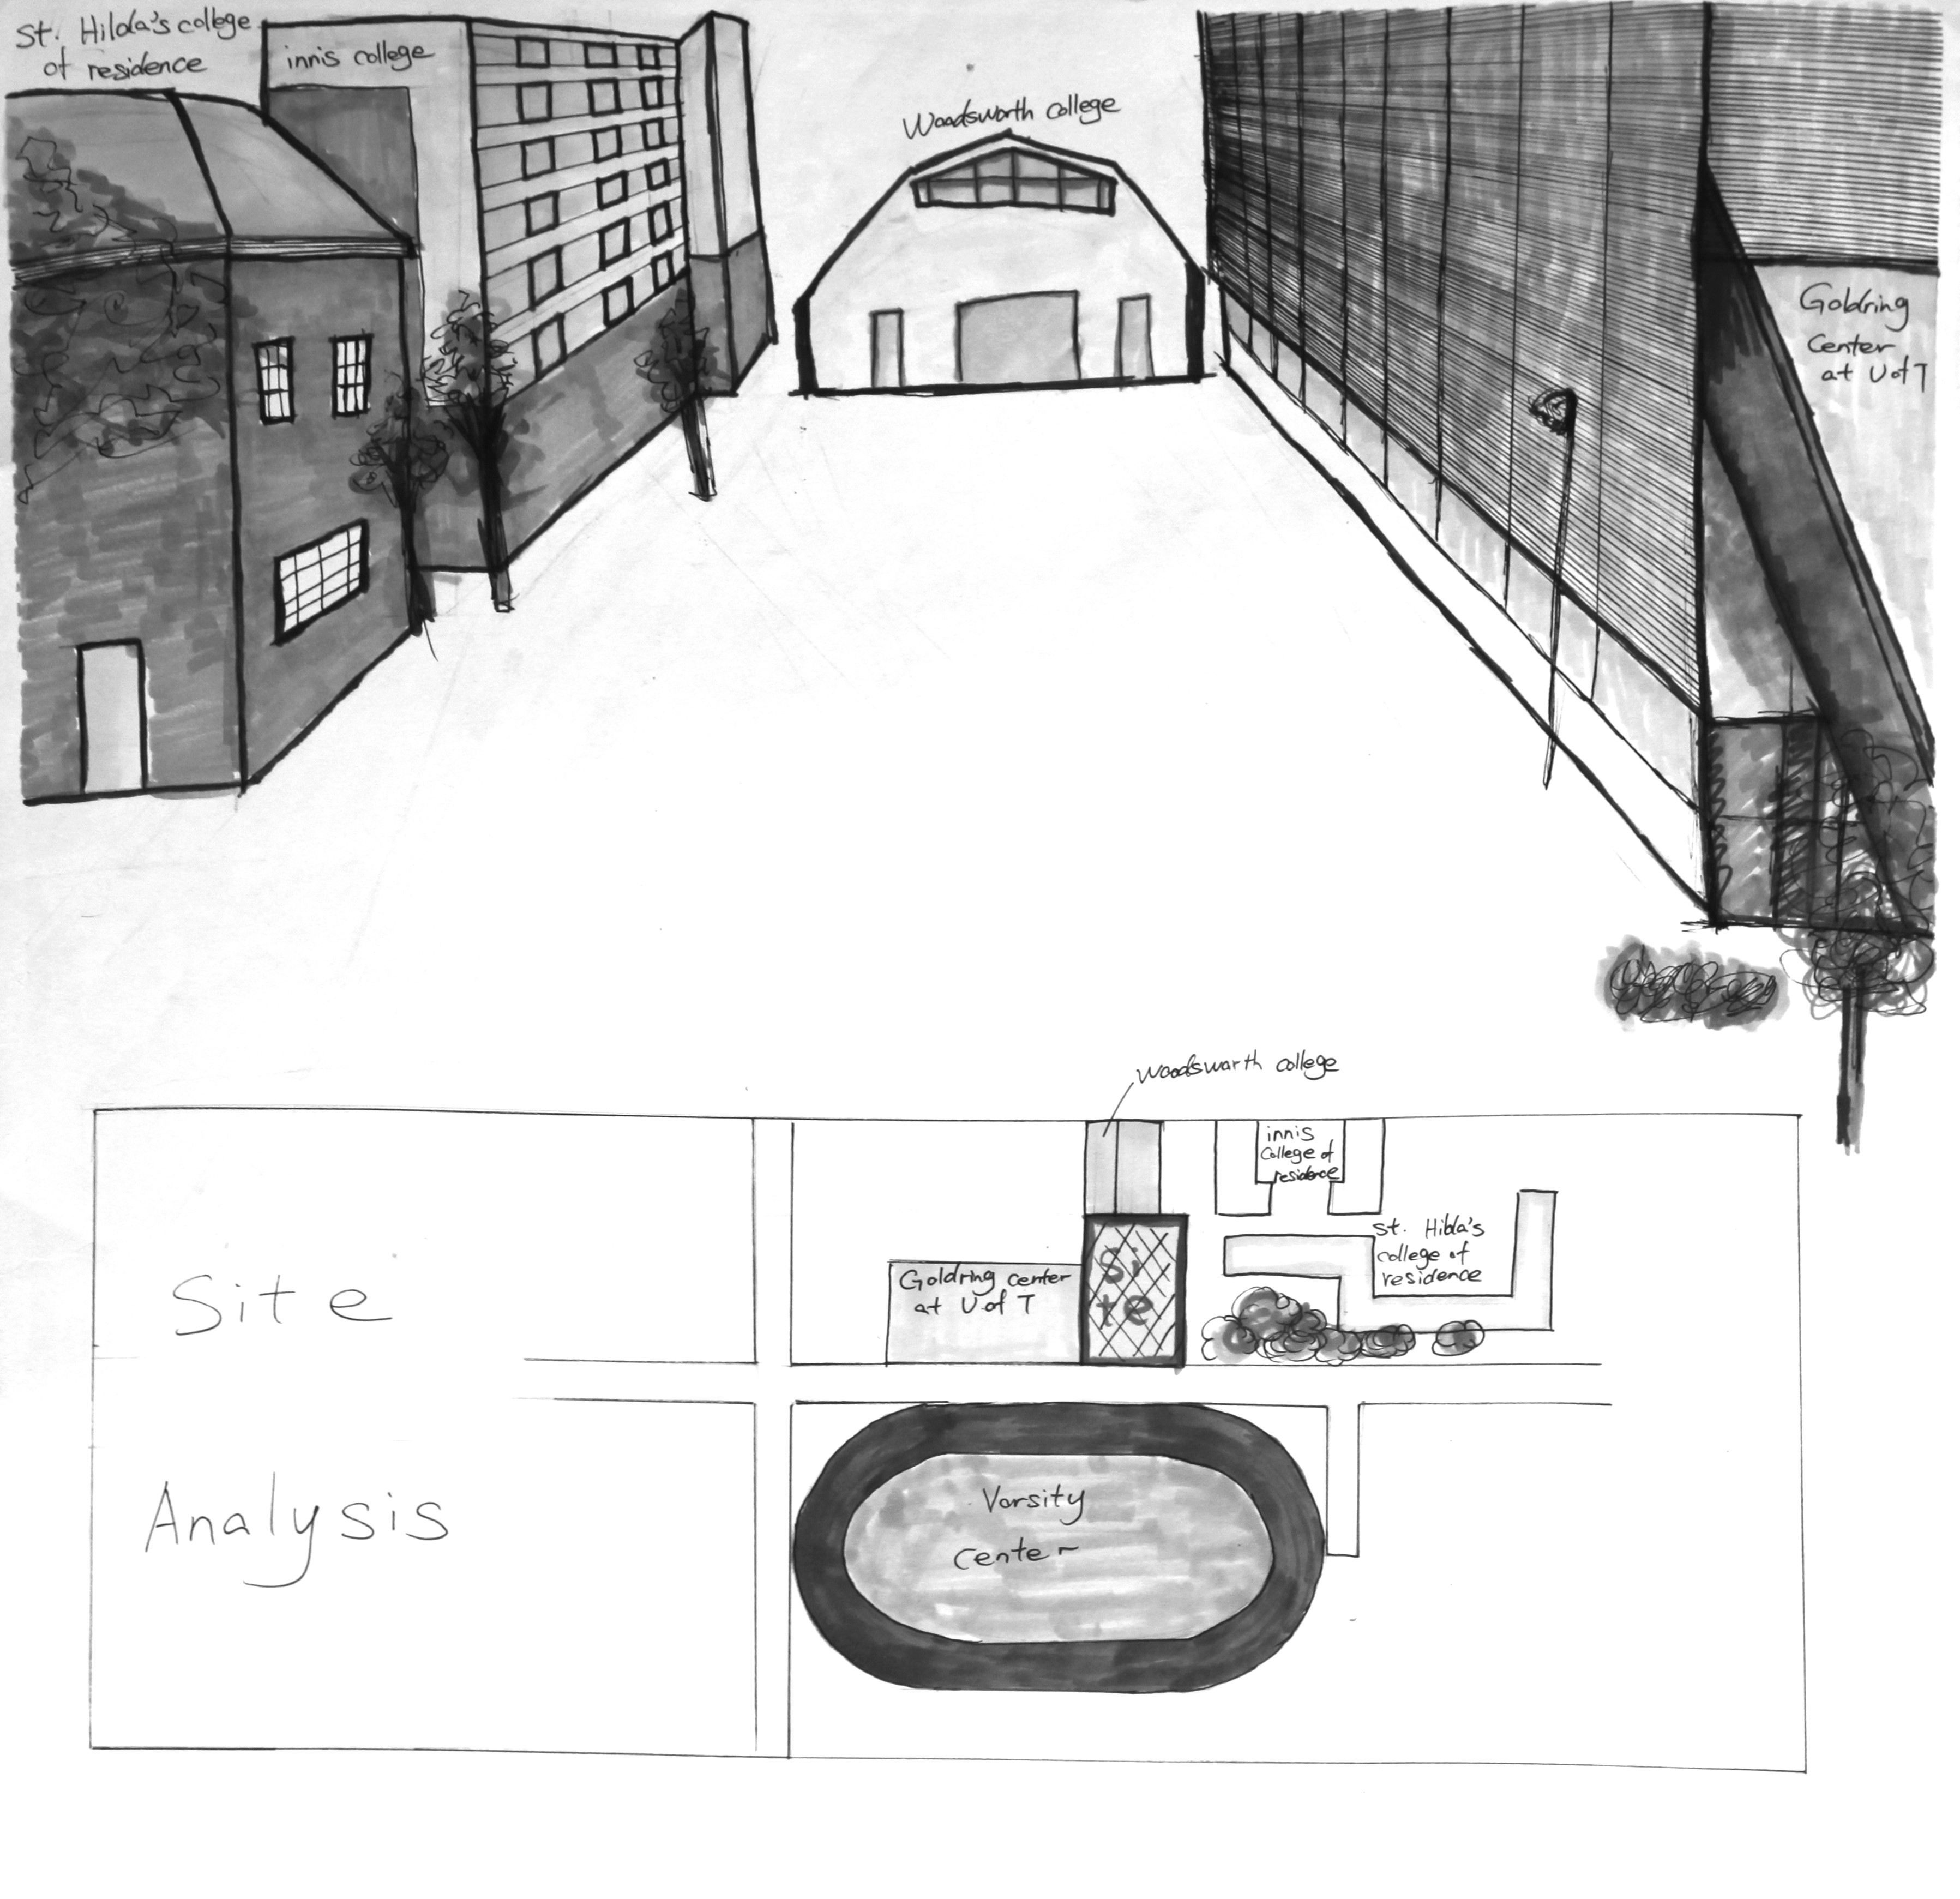 St. Hilda's college
of residence
innis college
Woodsworth college
Goldring
Center
at U of T
Woodswarth college
innis
College of
residence
St. Hilda's
college of
residence
Si
te
Goldring center
at U of T
Site
Analysis
Varsity
Center